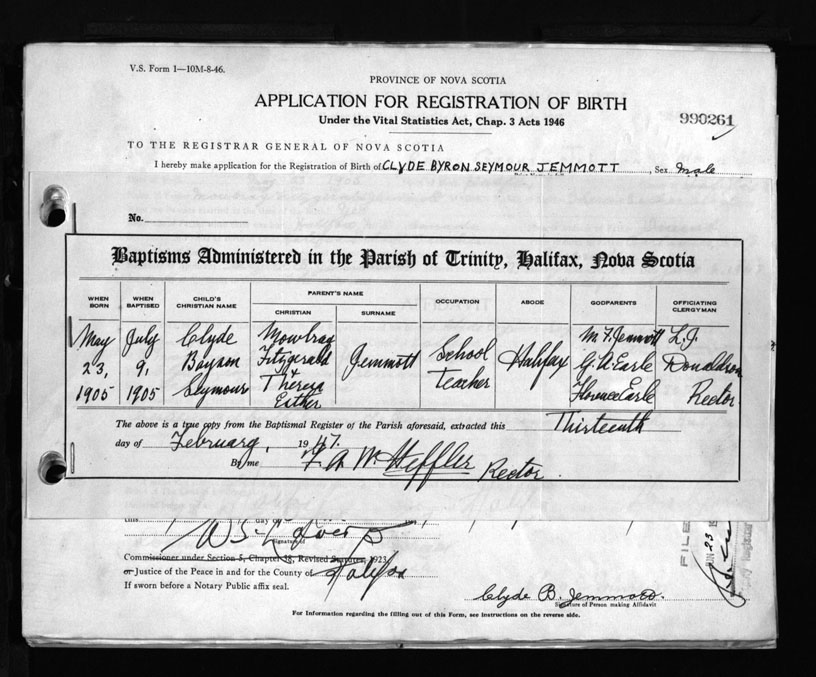 V.S. Form 1—10M-8-46.
PROVINCE OF NOVA SCOTIA
APPLICATION FOR REGISTRATION OF BIRTH
Under the Vital Statistics Act, Chap. 3 Acts 1946
990261
TO THE REGISTRAR GENERAL OF NOVA SCOTIA
I hereby make application for the Registration of Birth of CLYDE BYRON SEYMOUR JEMMOTT, Sex Male
No.
Baptisms Administered in the Parish of Trinity, Halifax, Nova Scotia
WHEN BORN WHEN BAPTISED CHILD'S CHRISTIAN NAME PARENT'S NAME CHRISTIAN SURNAME OCCUPATION ABODE GODPARENTS OFFICIATING CLERGYMAN
May July Clyde Mowbray School Halifax M F Jemmott L.J.
23, 9, Fitzgerald Jemmott G. A. Earle Donaldson
1905 1905 Seymour & Theresa Esther Teacher Florence Earle Rector
The above is a true copy from the Baptismal Register of the Parish aforesaid, extracted this Thirteenth
day of February, 1947.
By me F. A. W. Heffler Rector.
this day of
Signature of
Commissioner under Section 5, Chapter 38, Revised Statutes, 1923
or Justice of the Peace in and for the County of Halifax
If sworn before a Notary Public affix seal.
FILED
Clyde B. Jemmott.
Signature of Person making Affidavit
For Information regarding the filling out of this Form, see instructions on the reverse side.